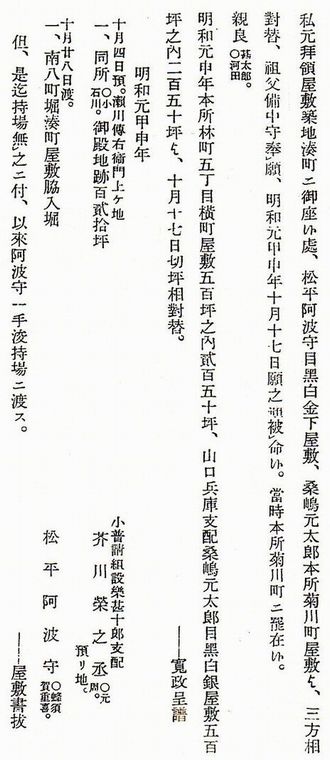 私元拜領屋敷築地湊町ニ御座い處、松平阿波守目黑白金下屋敷、桑嶋元太郎本所菊川町屋敷と、三方相
對替、祖父備中守奉願、明和元甲申年十月十七日願之通被命い。當時本所菊川町ニ罷在い。
親良〇甚太郎。河田
明和元申年本所林町五丁目橫町屋敷五百坪之內貳百五十坪、山口兵庫支配桑嶋元太郎目黑白銀屋敷五百
坪之內二百五十坪と、十月十七日切坪相對替。
——寬政呈譜
明和元甲申年
十月四日預。瀨川傳右衞門上ヶ地
一、同所〇小石川。御殿地跡百貳拾坪
小普請組設樂甚十郎支配
芥川榮之丞〇元珍。
預リ地。
十月廿八日渡。
一、南八町堀湊町屋敷脇入堀
松平阿波守〇蜂須賀重喜。
但、是迄持場無之ニ付、以來阿波守一手淩持場ニ渡ス。
——屋敷書拔